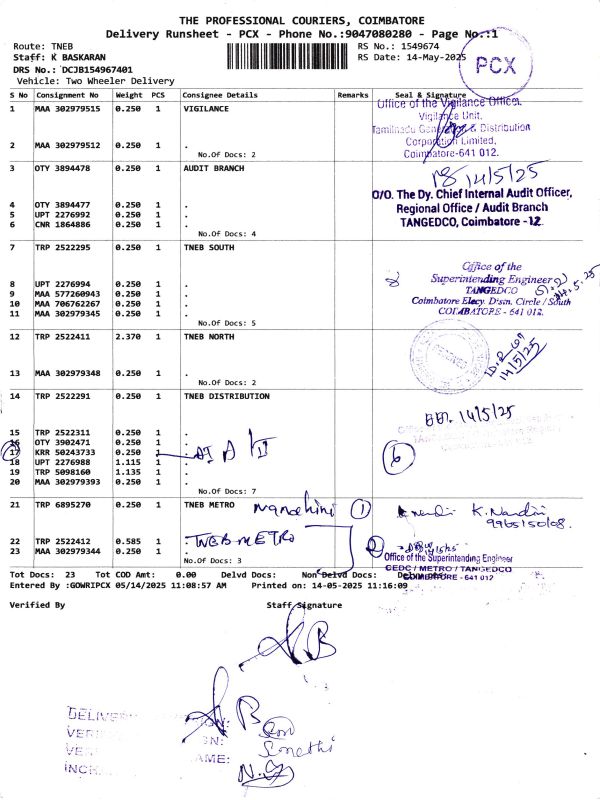 THE PROFESSIONAL COURIERS, COIMBATORE
Delivery Runsheet - PCX - Phone No.:9047080280 - Page No.:1
Route: TNEB
Staff: K BASKARAN
DRS No.: DCJB154967401
Vehicle: Two Wheeler Delivery
RS No.: 1549674
RS Date: 14-May-2025
PCX
S No Consignment No Weight PCS Consignee Details Remarks Seal & Signature
1 MAA 302979515 0.250 1 VIGILANCE
Office of the Vigilance Officer,
Vigilance Unit,
Tamilnadu Generation & Distribution
Corporation Limited,
Coimbatore-641 012.
2 MAA 302979512 0.250 1 .
No.Of Docs: 2
3 OTY 3894478 0.250 1 AUDIT BRANCH
14/5/25
O/O. The Dy. Chief Internal Audit Officer,
Regional Office / Audit Branch
TANGEDCO, Coimbatore -12.
4 OTY 3894477 0.250 1 .
5 UPT 2276992 0.250 1 .
6 CNR 1864886 0.250 1 .
No.Of Docs: 4
7 TRP 2522295 0.250 1 TNEB SOUTH
Office of the
Superintending Engineer
TANGEDCO
Coimbatore Elecy. D'stn. Circle / South
COIMBATORE - 641 012.
14.5.25
8 UPT 2276994 0.250 1 .
9 MAA 577260943 0.250 1 .
10 MAA 706762267 0.250 1 .
11 MAA 302979345 0.250 1 .
No.Of Docs: 5
12 TRP 2522411 2.370 1 TNEB NORTH
14/5/25
13 MAA 302979348 0.250 1 .
No.Of Docs: 2
14 TRP 2522291 0.250 1 TNEB DISTRIBUTION
14/5/25
15 TRP 2522311 0.250 1 .
16 OTY 3902471 0.250 1 .
17 KRR 50243733 0.250 1 .
18 UPT 2276988 1.115 1 .
19 TRP 5098160 1.135 1 .
20 MAA 302979393 0.250 1 .
No.Of Docs: 7
6
21 TRP 6895270 0.250 1 TNEB METRO
Nanohini 1
K. Nandini
22 TRP 2522412 0.585 1 .
TNEB METRO
23 MAA 302979344 0.250 1 .
No.Of Docs: 3
2
Office of the Superintending Engineer
CEDC / METRO / TANGEDCO
COIMBATORE - 641 012
Tot Docs: 23 Tot COD Amt: 0.00 Delvd Docs: Non Delvd Docs:
Entered By :GOWRIPCX 05/14/2025 11:08:57 AM Printed on: 14-05-2025 11:16:09
Verified By Staff Signature